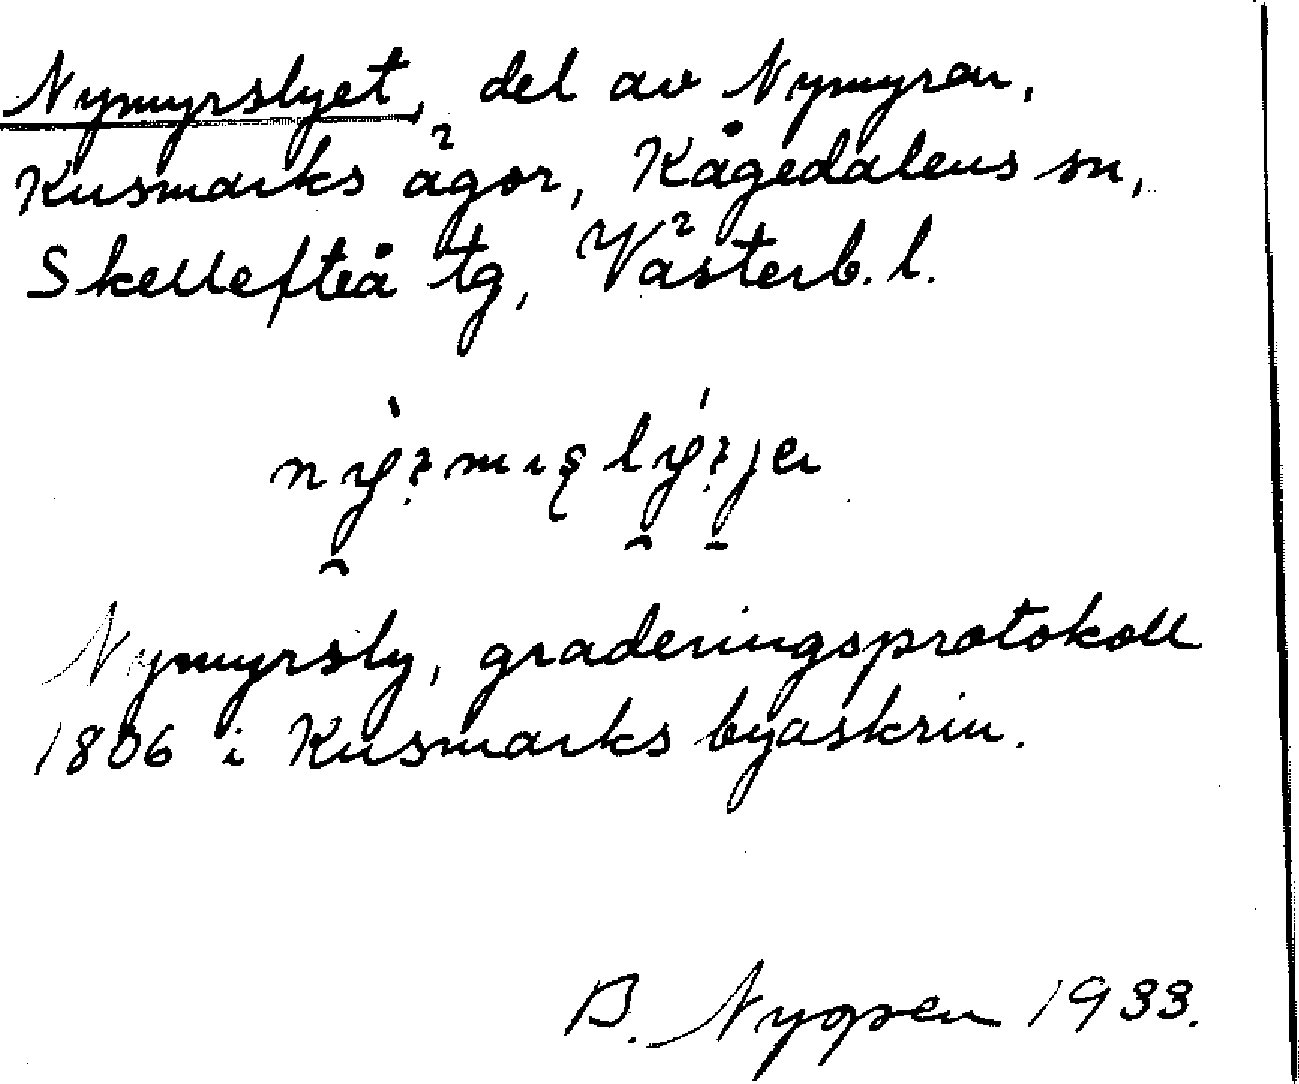 Nymyrslyet, del av Nymyren,
Kusmarks ägor, Kågedalens sn,
Skellefteå tg, Västerb. l.
Nymyrsly, graderingsprotokoll
1806 i Kusmarks byaskrin.
B. Nygren 1933.